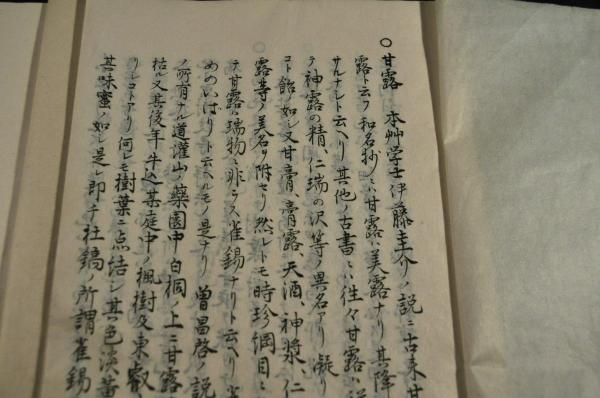 ○甘露 本艸学士伊藤圭介ノ説ニ古来甘
露ト云フ和名抄ノハ甘露ハ美露ナリ其降
サルナシト云ヘリ其他ノ古書ニハ往々甘露ハ
テ神露の精、仁瑞の沢等ノ異名アリ凝リ
コト飴ノ如し又甘膏、膏露、天酒、神漿、仁
露等ノ美名ヲ附セリ然レトモ時珍綱目ニ
テ甘露ハ瑞物ニ非ラス雀錫ナリト云ヘリ
めのいばりト云ヘルモノ是ナリ曽昌啓ノ説
ノ所有ナル道灌山ノ薬園中白桐ノ上ニ甘露
枯ル又其後年牛込某庭中ノ楓樹及東叡
リシコトアリ何レモ樹葉ニ点結シ其色淡黄
其味蜜ノ如シ是レ即チ杜鎬ノ所謂雀錫